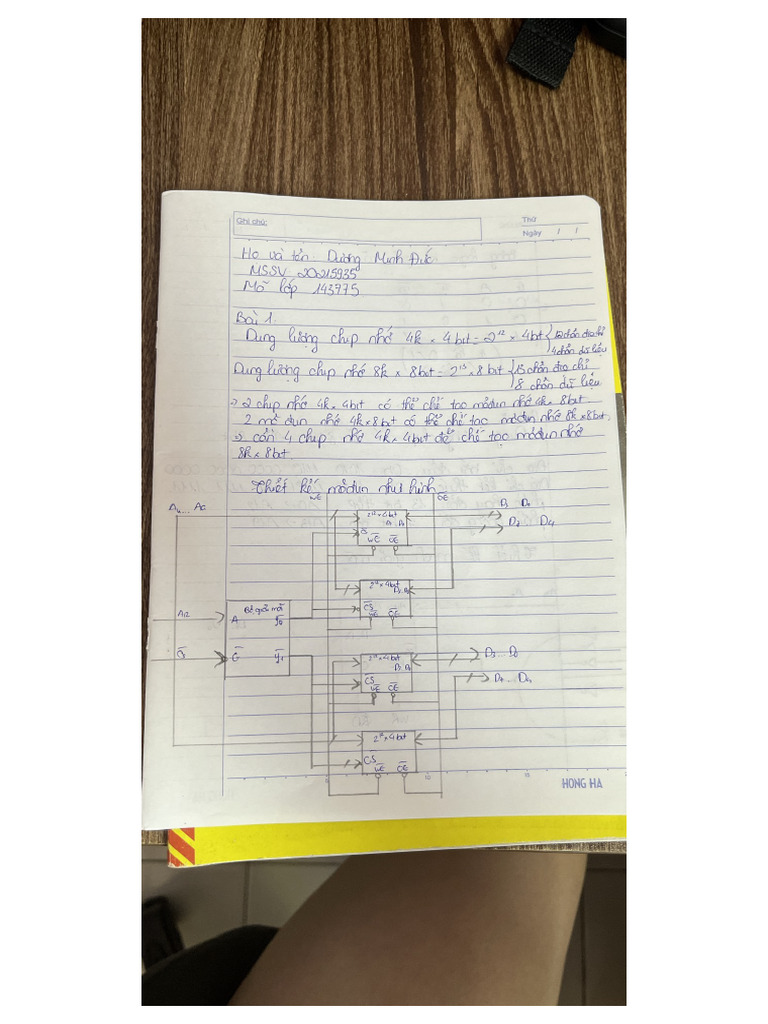 Ghi chú:
Thứ
Ngày / /
Họ và tên Dương Minh Đức
MSSV 20215935
Mã lớp 143775
Bài 1.
Dung lượng chip nhớ 4k × 4bit = 2¹² × 4bit { 12 chân địa chỉ
4 chân dữ liệu
Dung lượng chip nhớ 8k × 8bit = 2¹³ × 8 bit { 13 chân địa chỉ
8 chân dữ liệu
⇒ 2 chip nhớ 4k × 4bit có thể chế tạo môđun nhớ 4k × 8bit
2 mô đun nhớ 4k × 8bit có thể chế tạo môđun nhớ 8k × 8bit.
⇒ cần 4 chip nhớ 4k × 4bit để chế tạo môđun nhớ
8k × 8bit
Thiết kế môđun như hình
WE OE
2¹² × 4bit
CS
WE OE
D7 D4
2¹² × 4bit
CS
WE OE
A12
Bộ giải mã
A y0
G y1
2¹² × 4bit
CS
WE OE
D3 .. D0
D7 ... D4
2¹² × 4bit
CS
WE OE
HONG HA